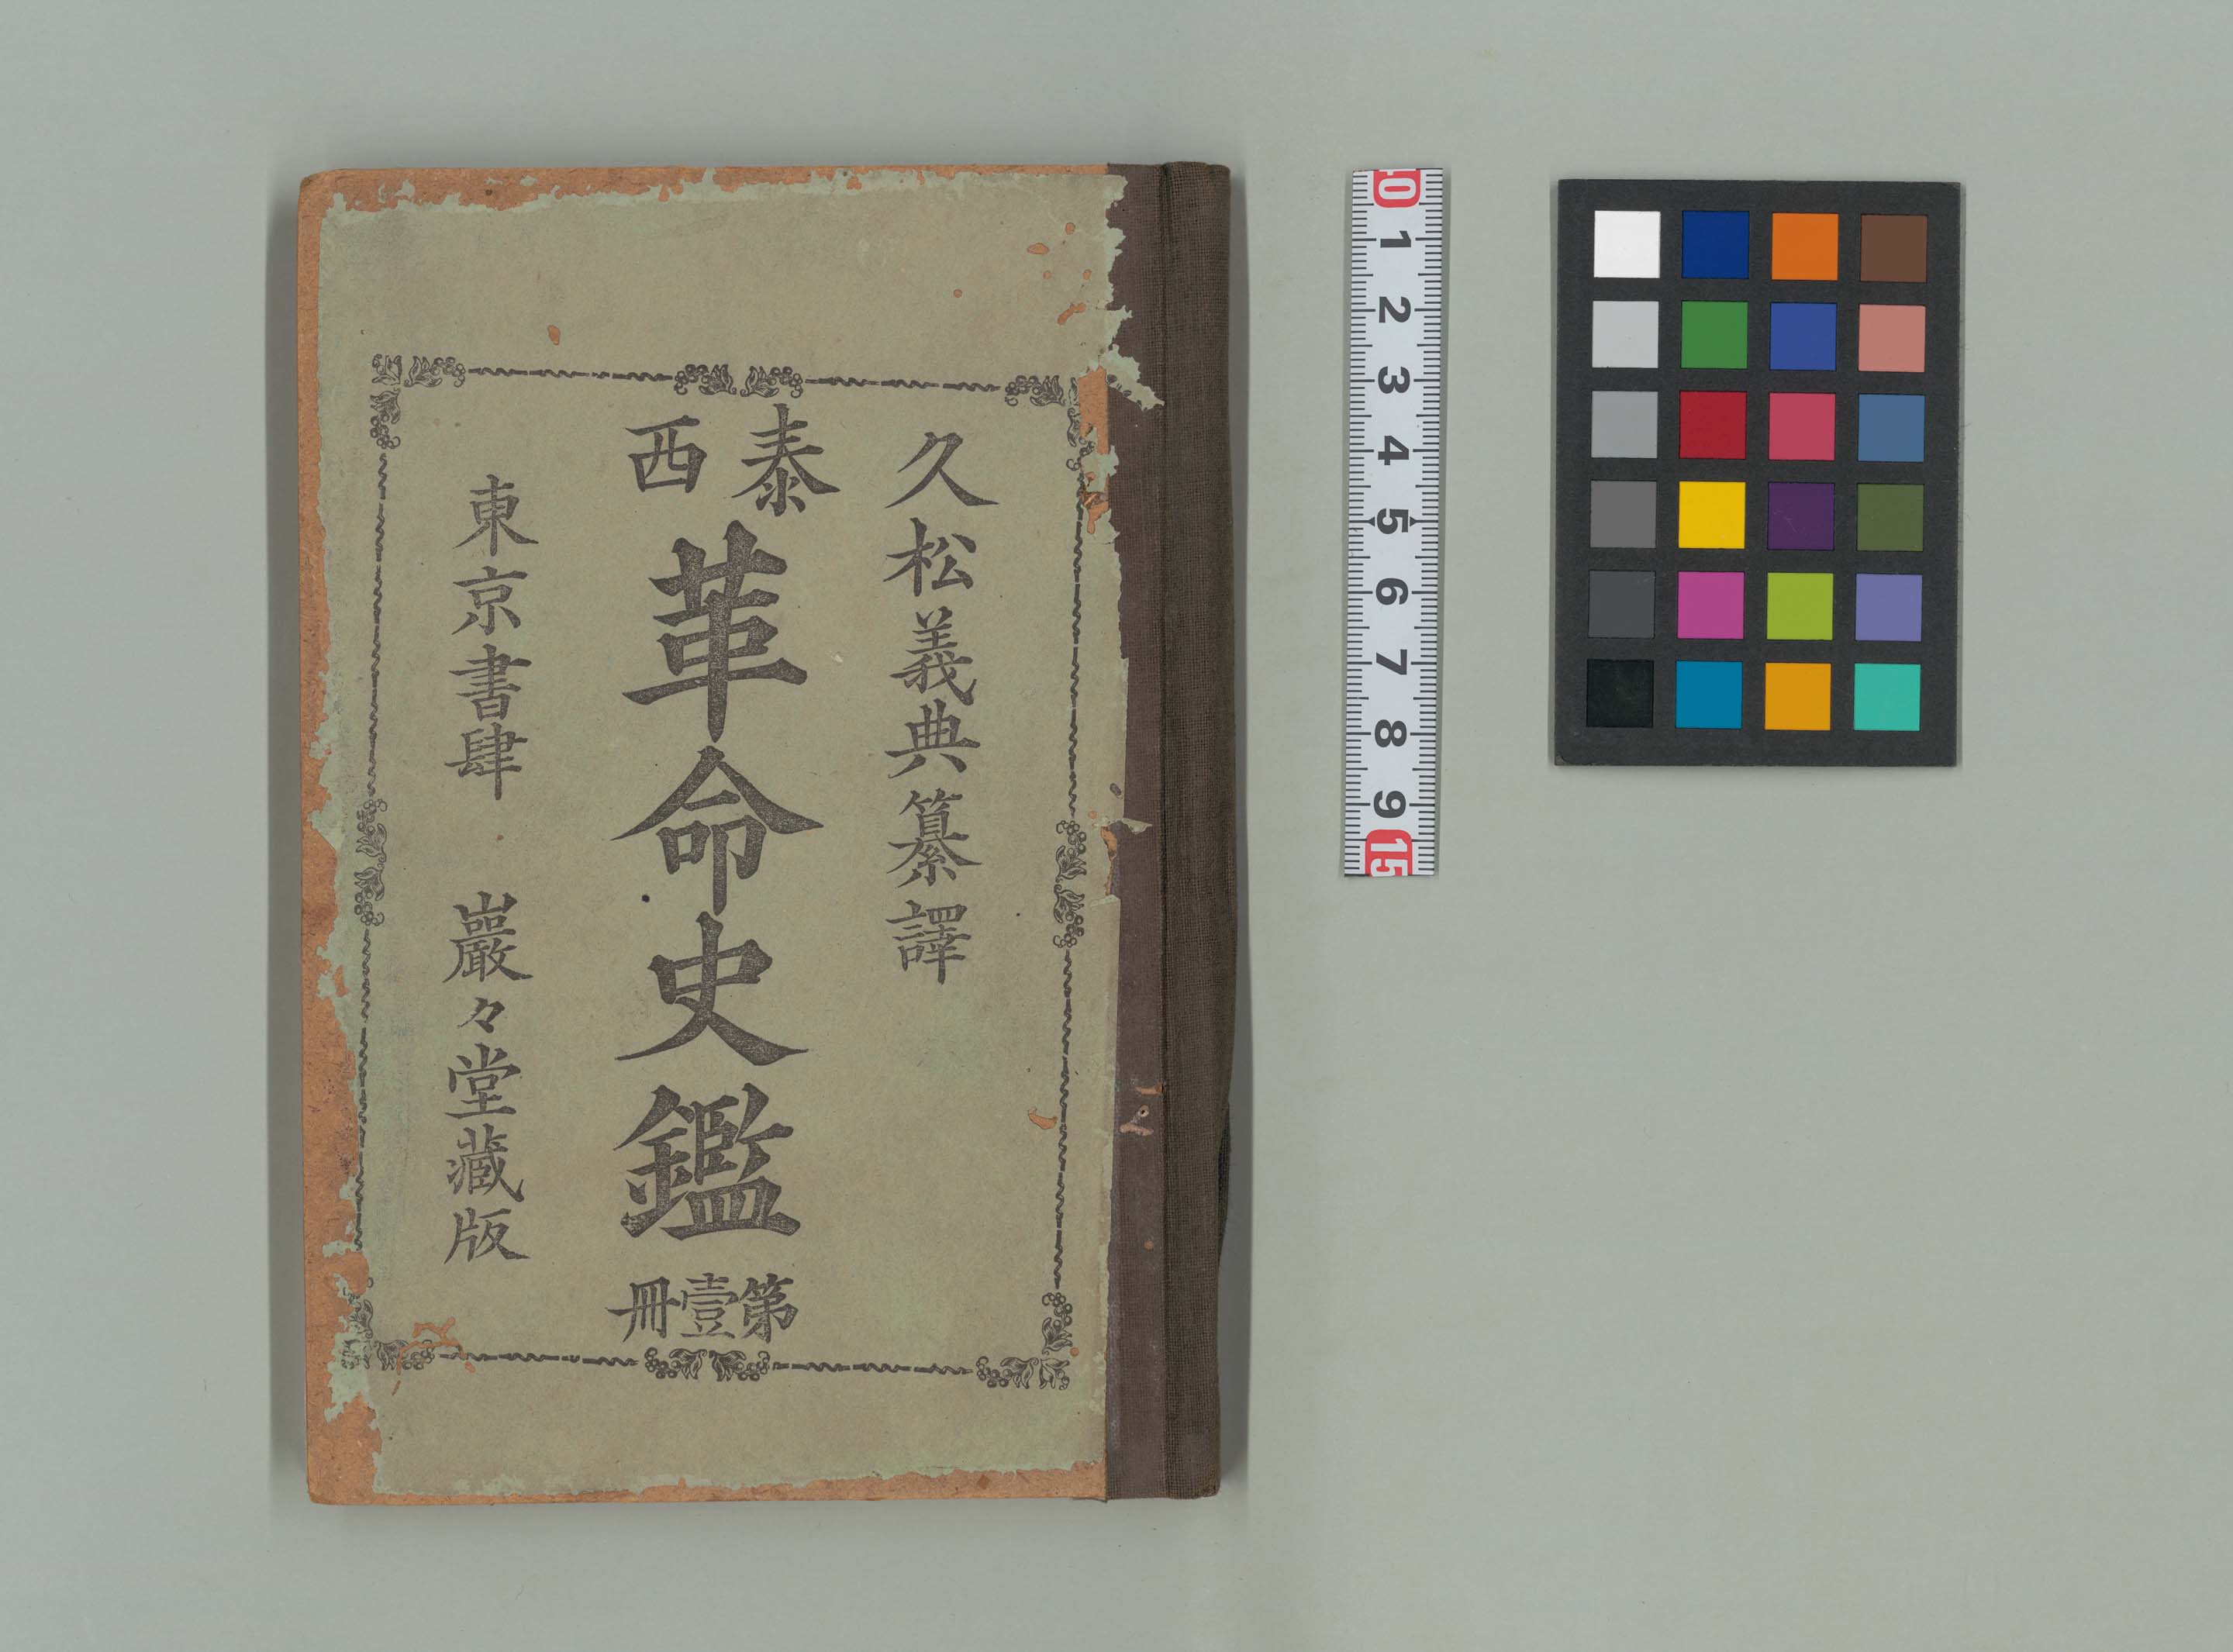 久松義典纂譯
泰西
革命史鑑
第壹冊
東京書肆 巖々堂藏版
0 1 2 3 4 5 6 7 8 9 15